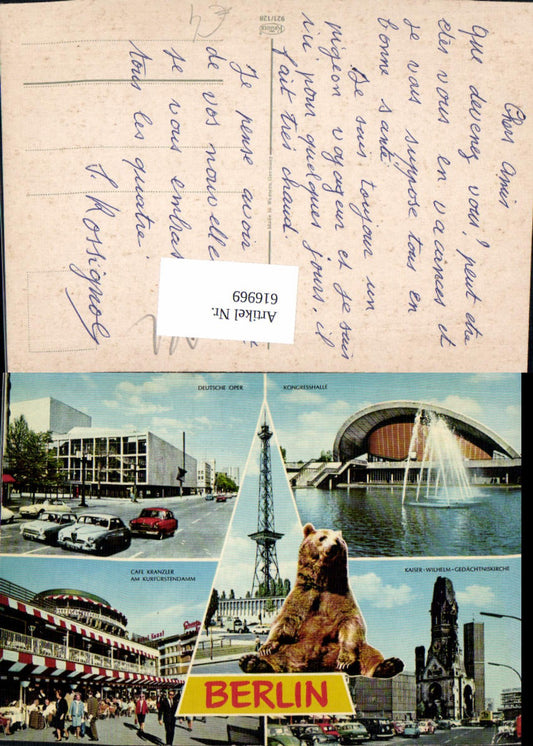 Chers amis
Que devenez vous? peut être
êtes vous en vacances et
je vous suppose tous en
bonne santé.
Je suis toujour un
pigeon voyageur et je suis
ici pour quelques jours, il
fait très chaud.
Je pense avoir
de vos nouvelle
je vous embras
tous les quatre.
S. Rossignol
921/128
Artikel Nr.
616969
DEUTSCHE OPER
KONGRESSHALLE
CAFE KRANZLER
AM KURFÜRSTENDAMM
KAISER-WILHELM-GEDÄCHTNISKIRCHE
BERLIN